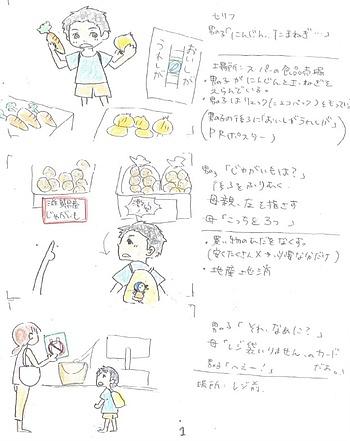 セリフ
男の子「にんじん、たまねぎ…」
おいしが
うれしが
場所：スーパーの食品売場
・男の子がにんじんと玉ねぎを
えらんでいる。
・男の子はリュック(エコバック)をもっている
(男の子の後ろに「おいしがうれしが」
PRポスター)
滋賀県産
じゃがいも
男の子「じゃがいもは？」
後ろをふりむく
母親、左を指さす
母「こっちをろっ
・買い物のむだをなくす。
・地産地消
男の子「それ、なぁに？」
母「レジ袋いりません、のカード
だよ。」
男の子「へぇー！」
場所：レジ前
1